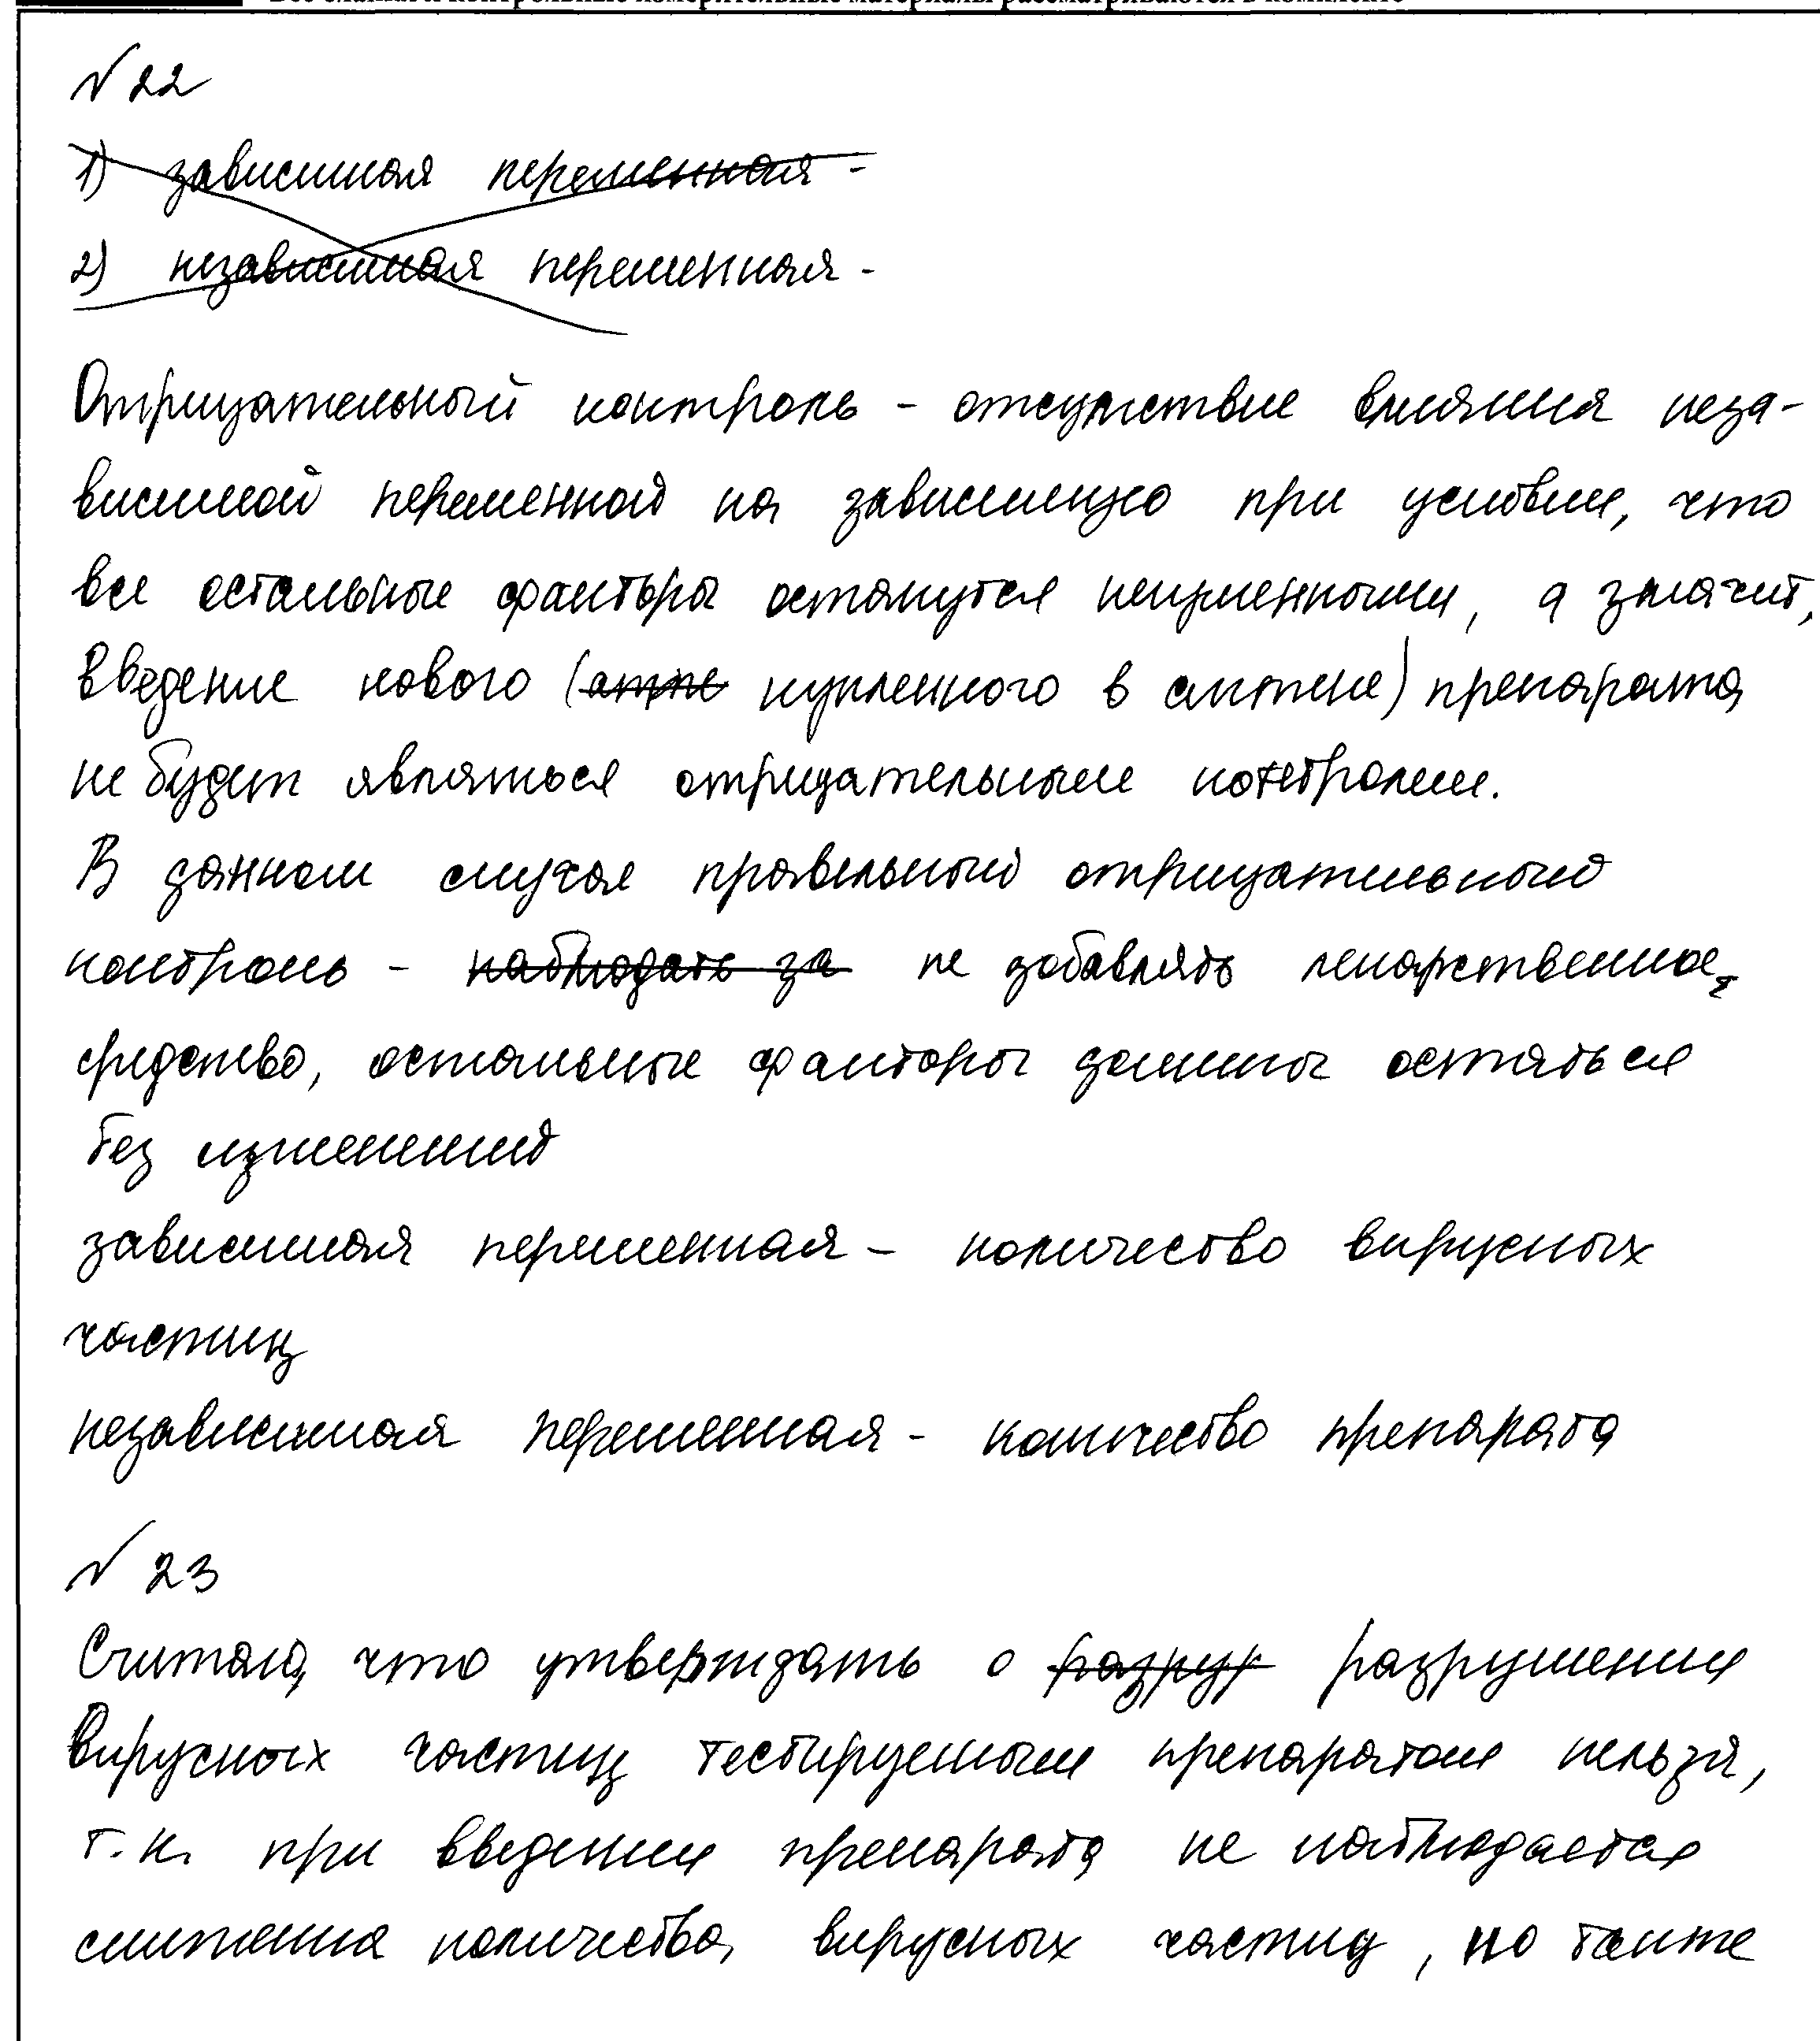 Все бланки и контрольные измерительные материалы рассматриваются в комплекте
№ 22
1) зависимая переменная -
2) независимая переменная -
Отрицательный контроль - отсутствие влияния неза-
висимой переменной на зависимую при условии, что
все остальные факторы останутся неизменными, а значит,
введение нового (апте купленного в аптеке) препарата
не будет являться отрицательным контролем.
В данном случае правильный отрицательный
контроль - наблюдать за не добавлять лекарственное
средство, остальные факторы должны остаться
без изменений
зависимая переменная - количество вирусных
частиц
независимая переменная - количество препарата
№ 23
Считаю, что утверждать о разруш разрушении
вирусных частиц тестируемым препаратом нельзя,
т.к. при введении препарата не наблюдается
снижения количества вирусных частиц, но также